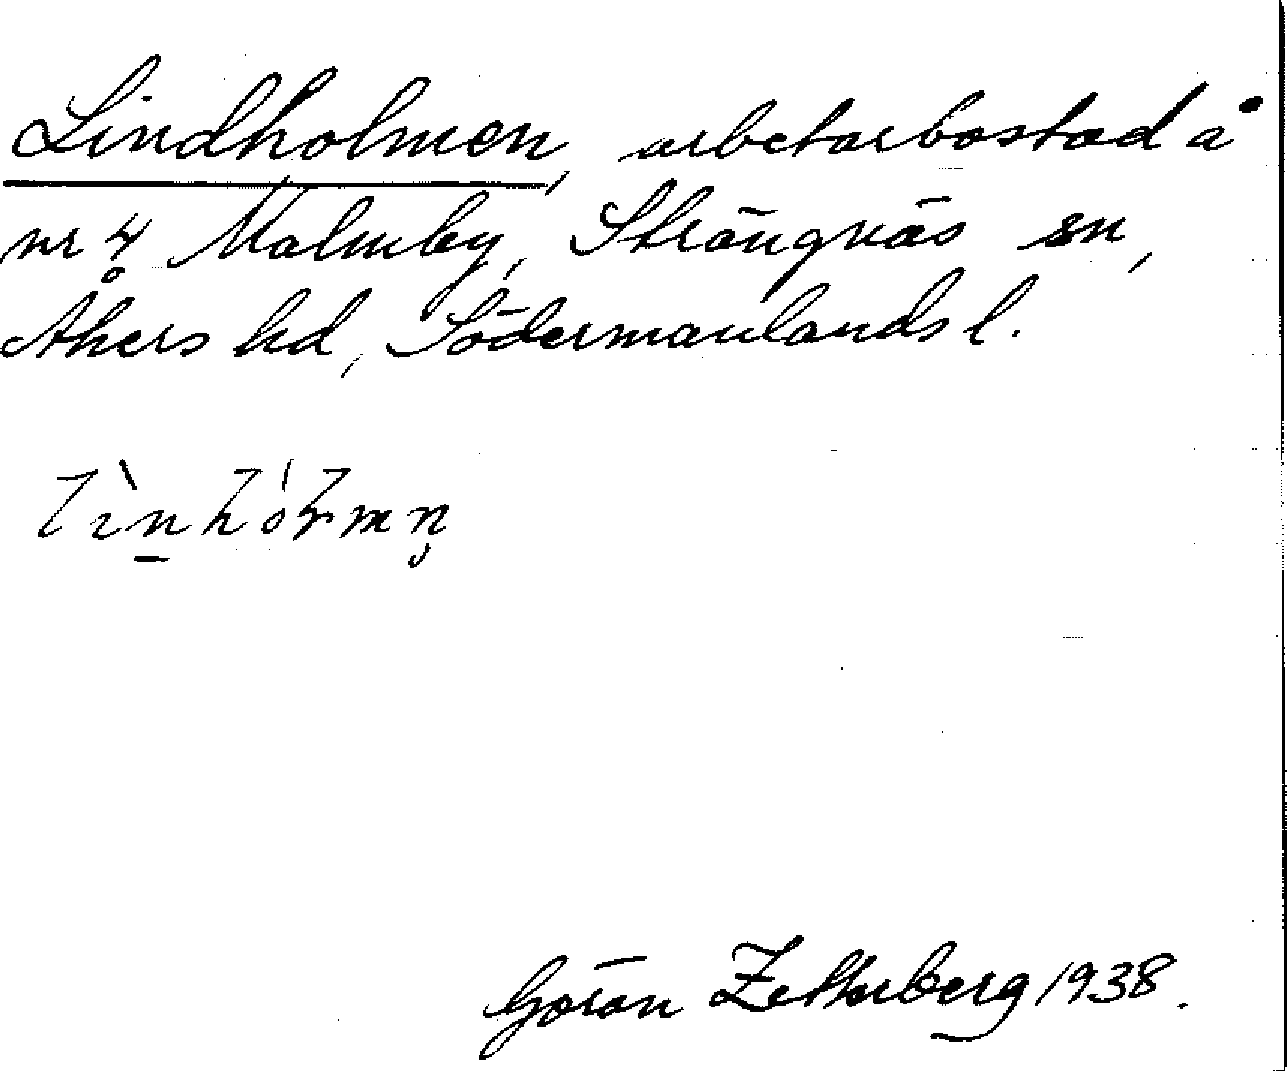 Lindholmen, arbetarbostad å
nr 4 Malmby, Strängnäs sn,
Åkers hd, Södermanlands l.
Göran Zetterberg 1938.